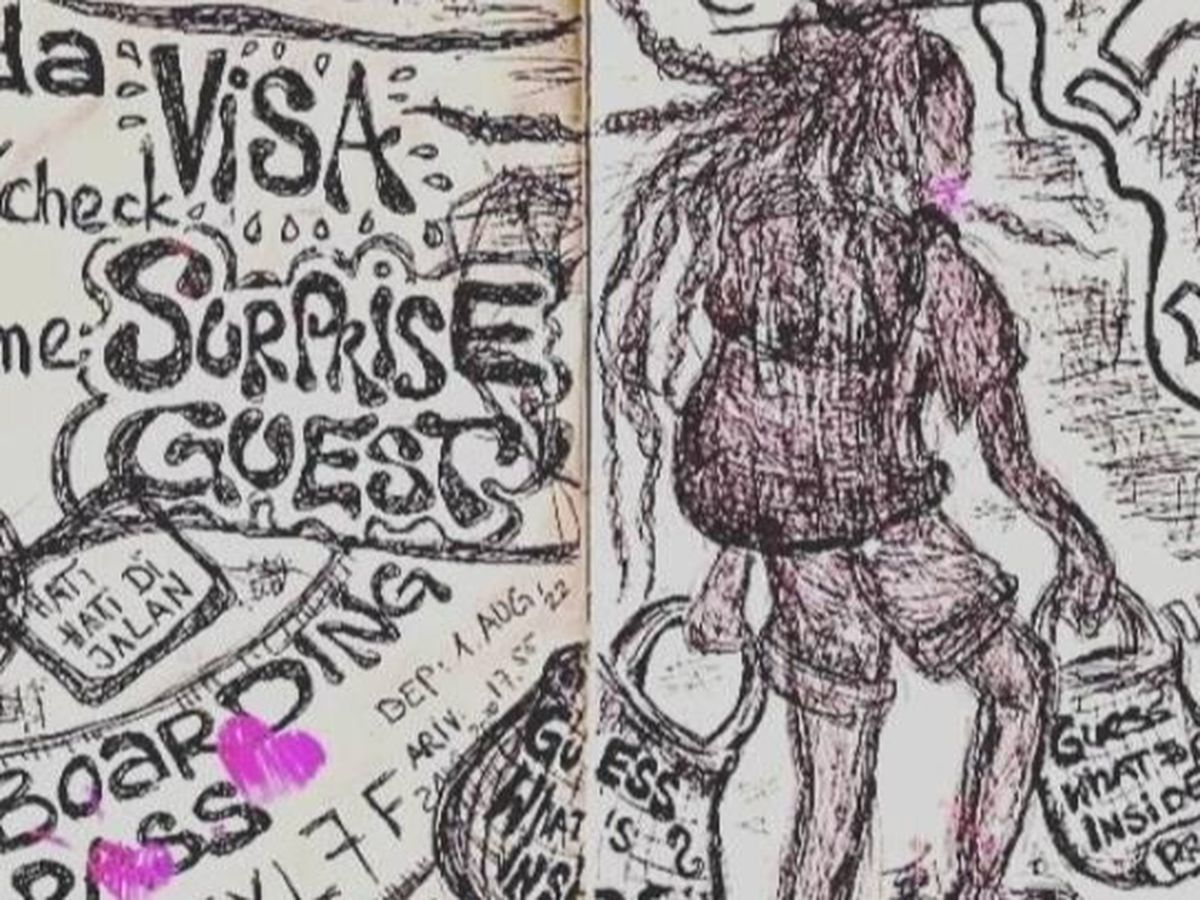 da
VISA
check
SURPRISE
me:
GUEST
HATI
HATI DI
JALAN
BOARDING
PASS
DEP. 1 AUG '22
ARIV. 17.55
7F
GUESS
WHAT'S
INSIDE
ESS
'S ?
GU
WHAT
INSI